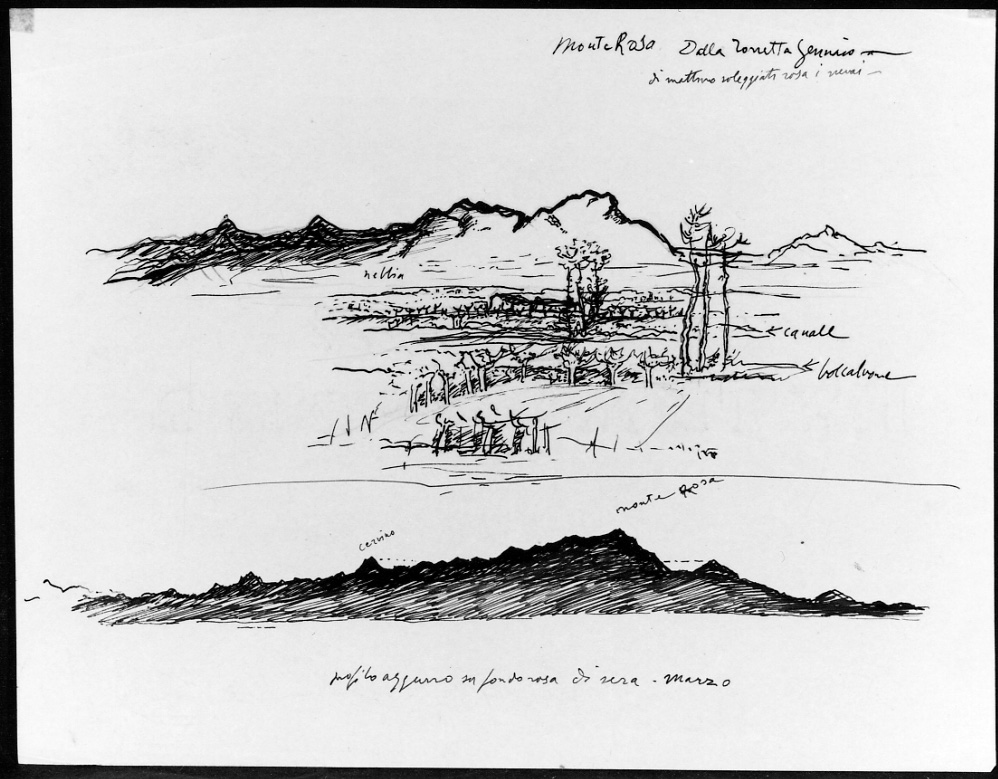 Monte Rosa Dalla Torretta Gennaio
di mattino soleggiati rosa i nevai
nebbia
canale
boccalone
monte Rosa
cervino
profilo azzurro su fondo rosa di sera - Marzo